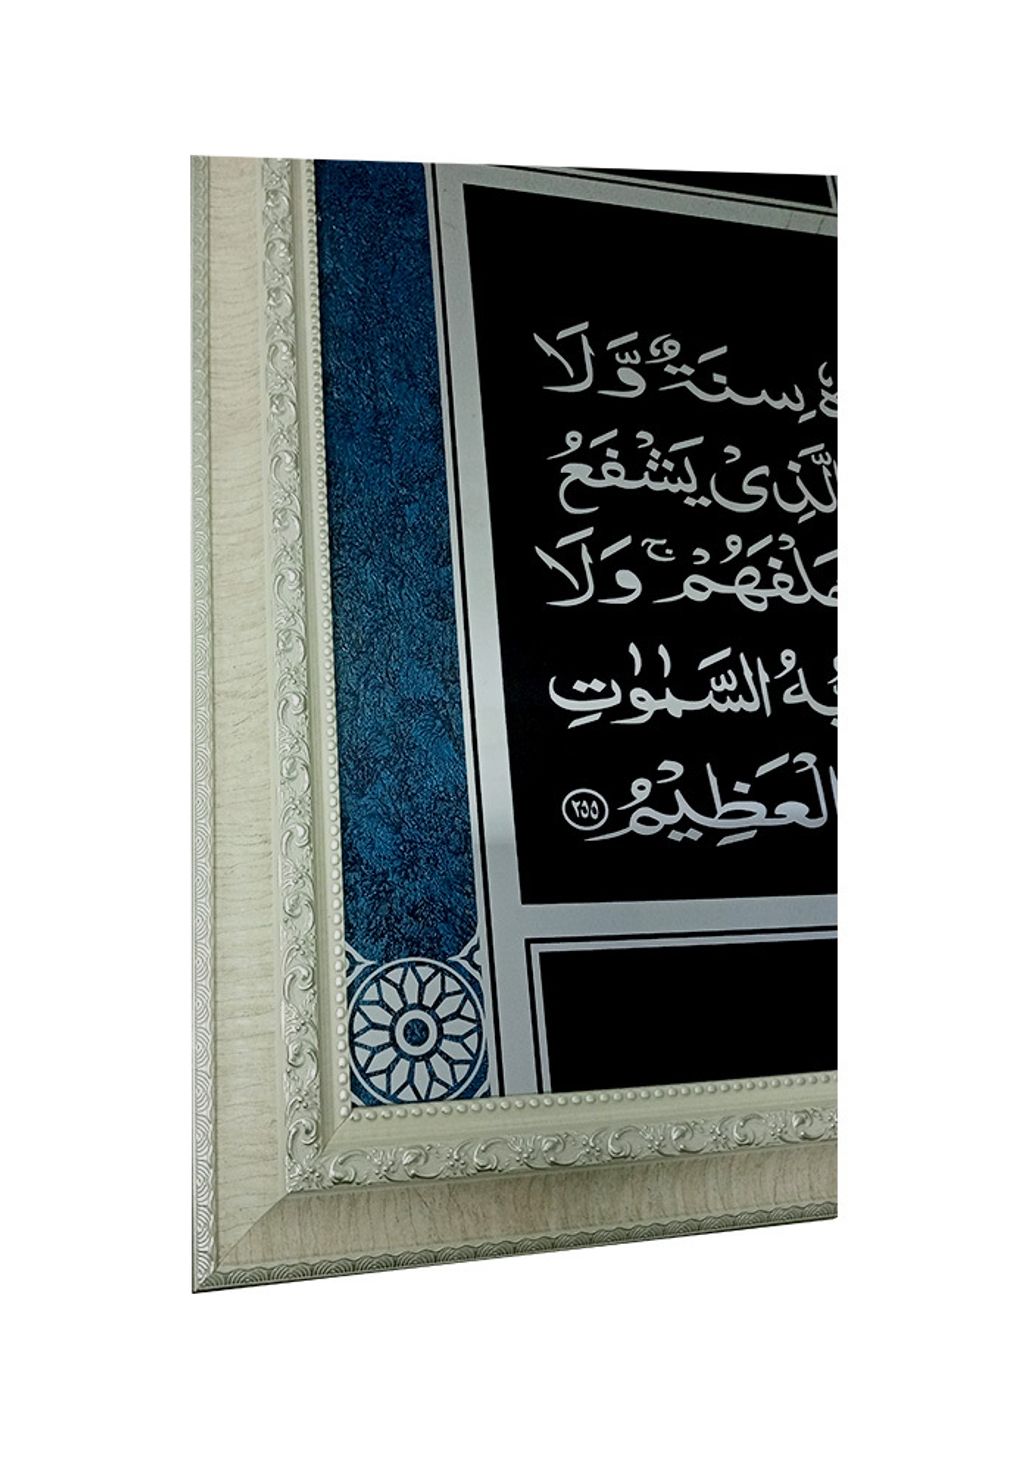 سِنَةٌ وَّلَا
الَّذِىْ يَشْفَعُ
خَلْفَهُمْ ۚ وَلَا
السَّمٰوٰتِ
الْعَظِيْمُ ٢٥٥